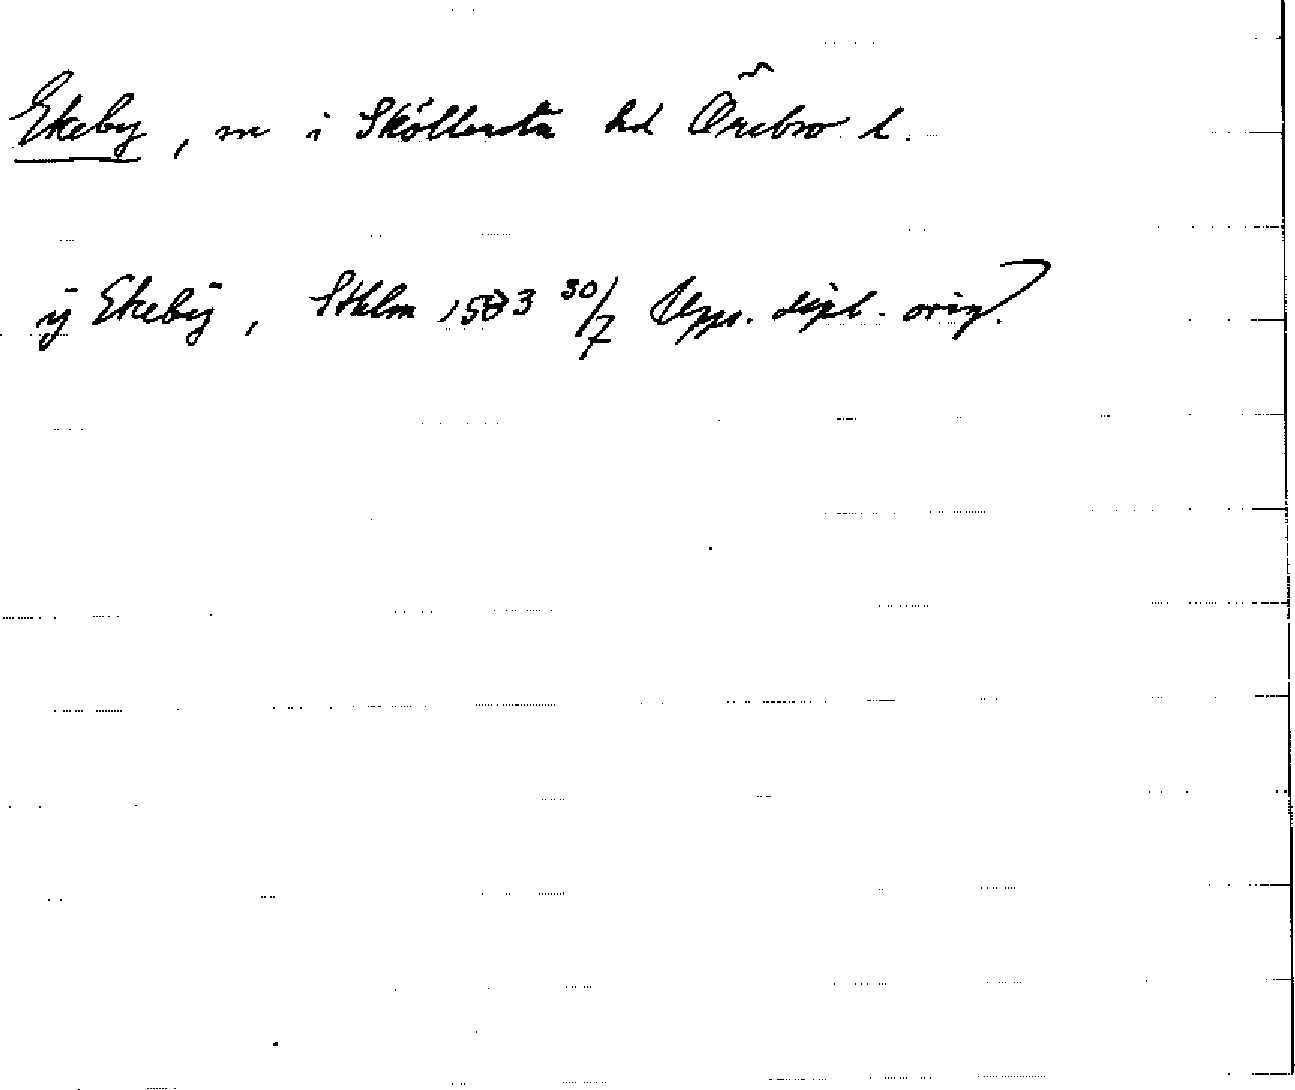 Ekeby, sn i Sköllersta hd Örebro l.
ÿ Ekebÿ, Sthlm 1583 30/7 Upps. dipl. orig.